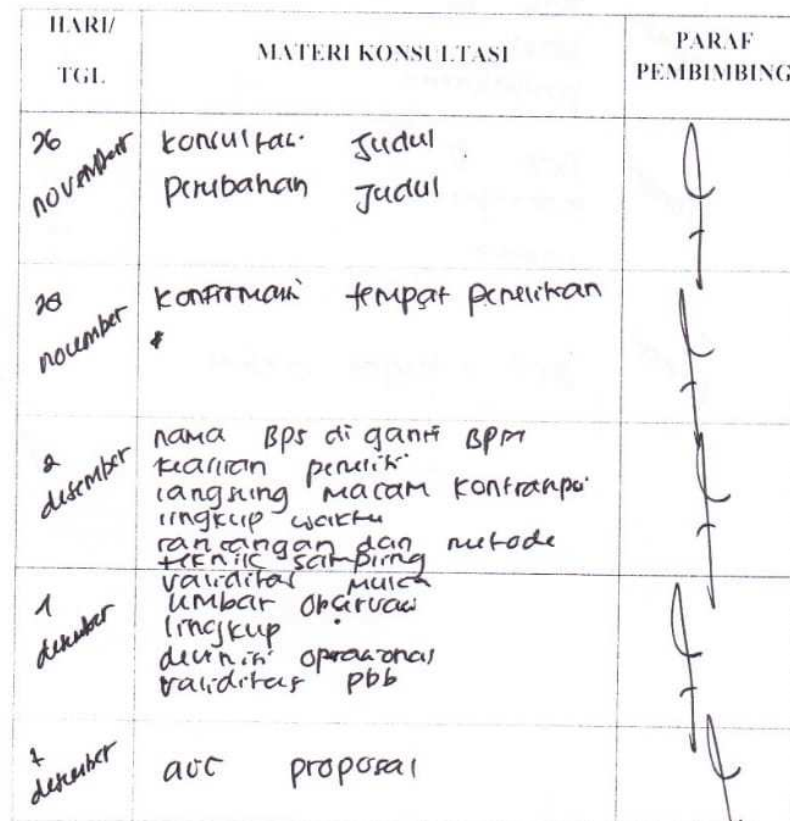 HARI/
TGL
MATERI KONSULTASI
PARAF
PEMBIMBING
26
november
Konsultasi Judul
Perubahan Judul
28
november
Konfirmasi tempat penelitian
2
desember
nama BPS di ganti BPM
keaslian peneliti
langsung macam kontrasepsi
lingkup waktu
rancangan dan metode
teknik sampling
validitas
desember
lembar observasi
lingkup
definisi operasional
validitas pbb
7
desember
acc proposal